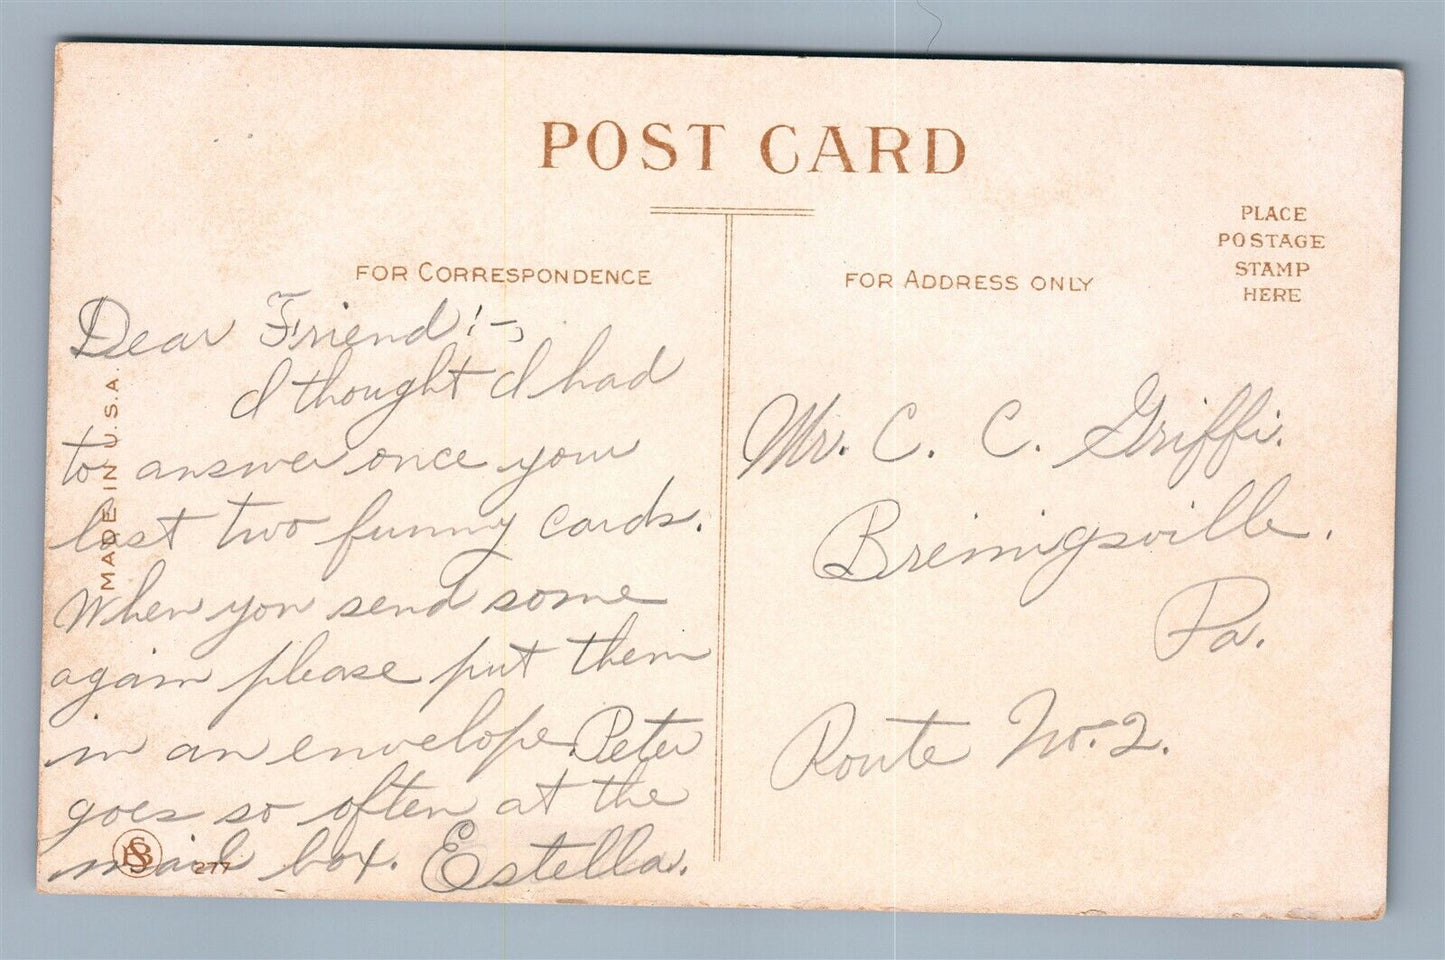 POST CARD
PLACE
POSTAGE
STAMP
HERE
FOR CORRESPONDENCE
FOR ADDRESS ONLY
MADE IN U.S.A.
Dear Friend:-
I thought I had
to answer once your
last two funny cards.
When you send some
again please put them
in an envelope. Peter
goes so often at the
mail box. Estella.
277
Mr. C. C. Griffi.
Breinigsville.
Pa.
Route No. 2.